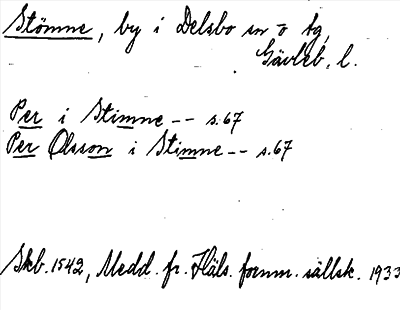 Stömne, by i Delsbo sn o tg,
Gävleb. l.
Per i Stimne -- s.67
Per Olsson i Stimne -- s.67
Skb. 1542, Medd. fr. Häls. fornm. sällsk. 1933